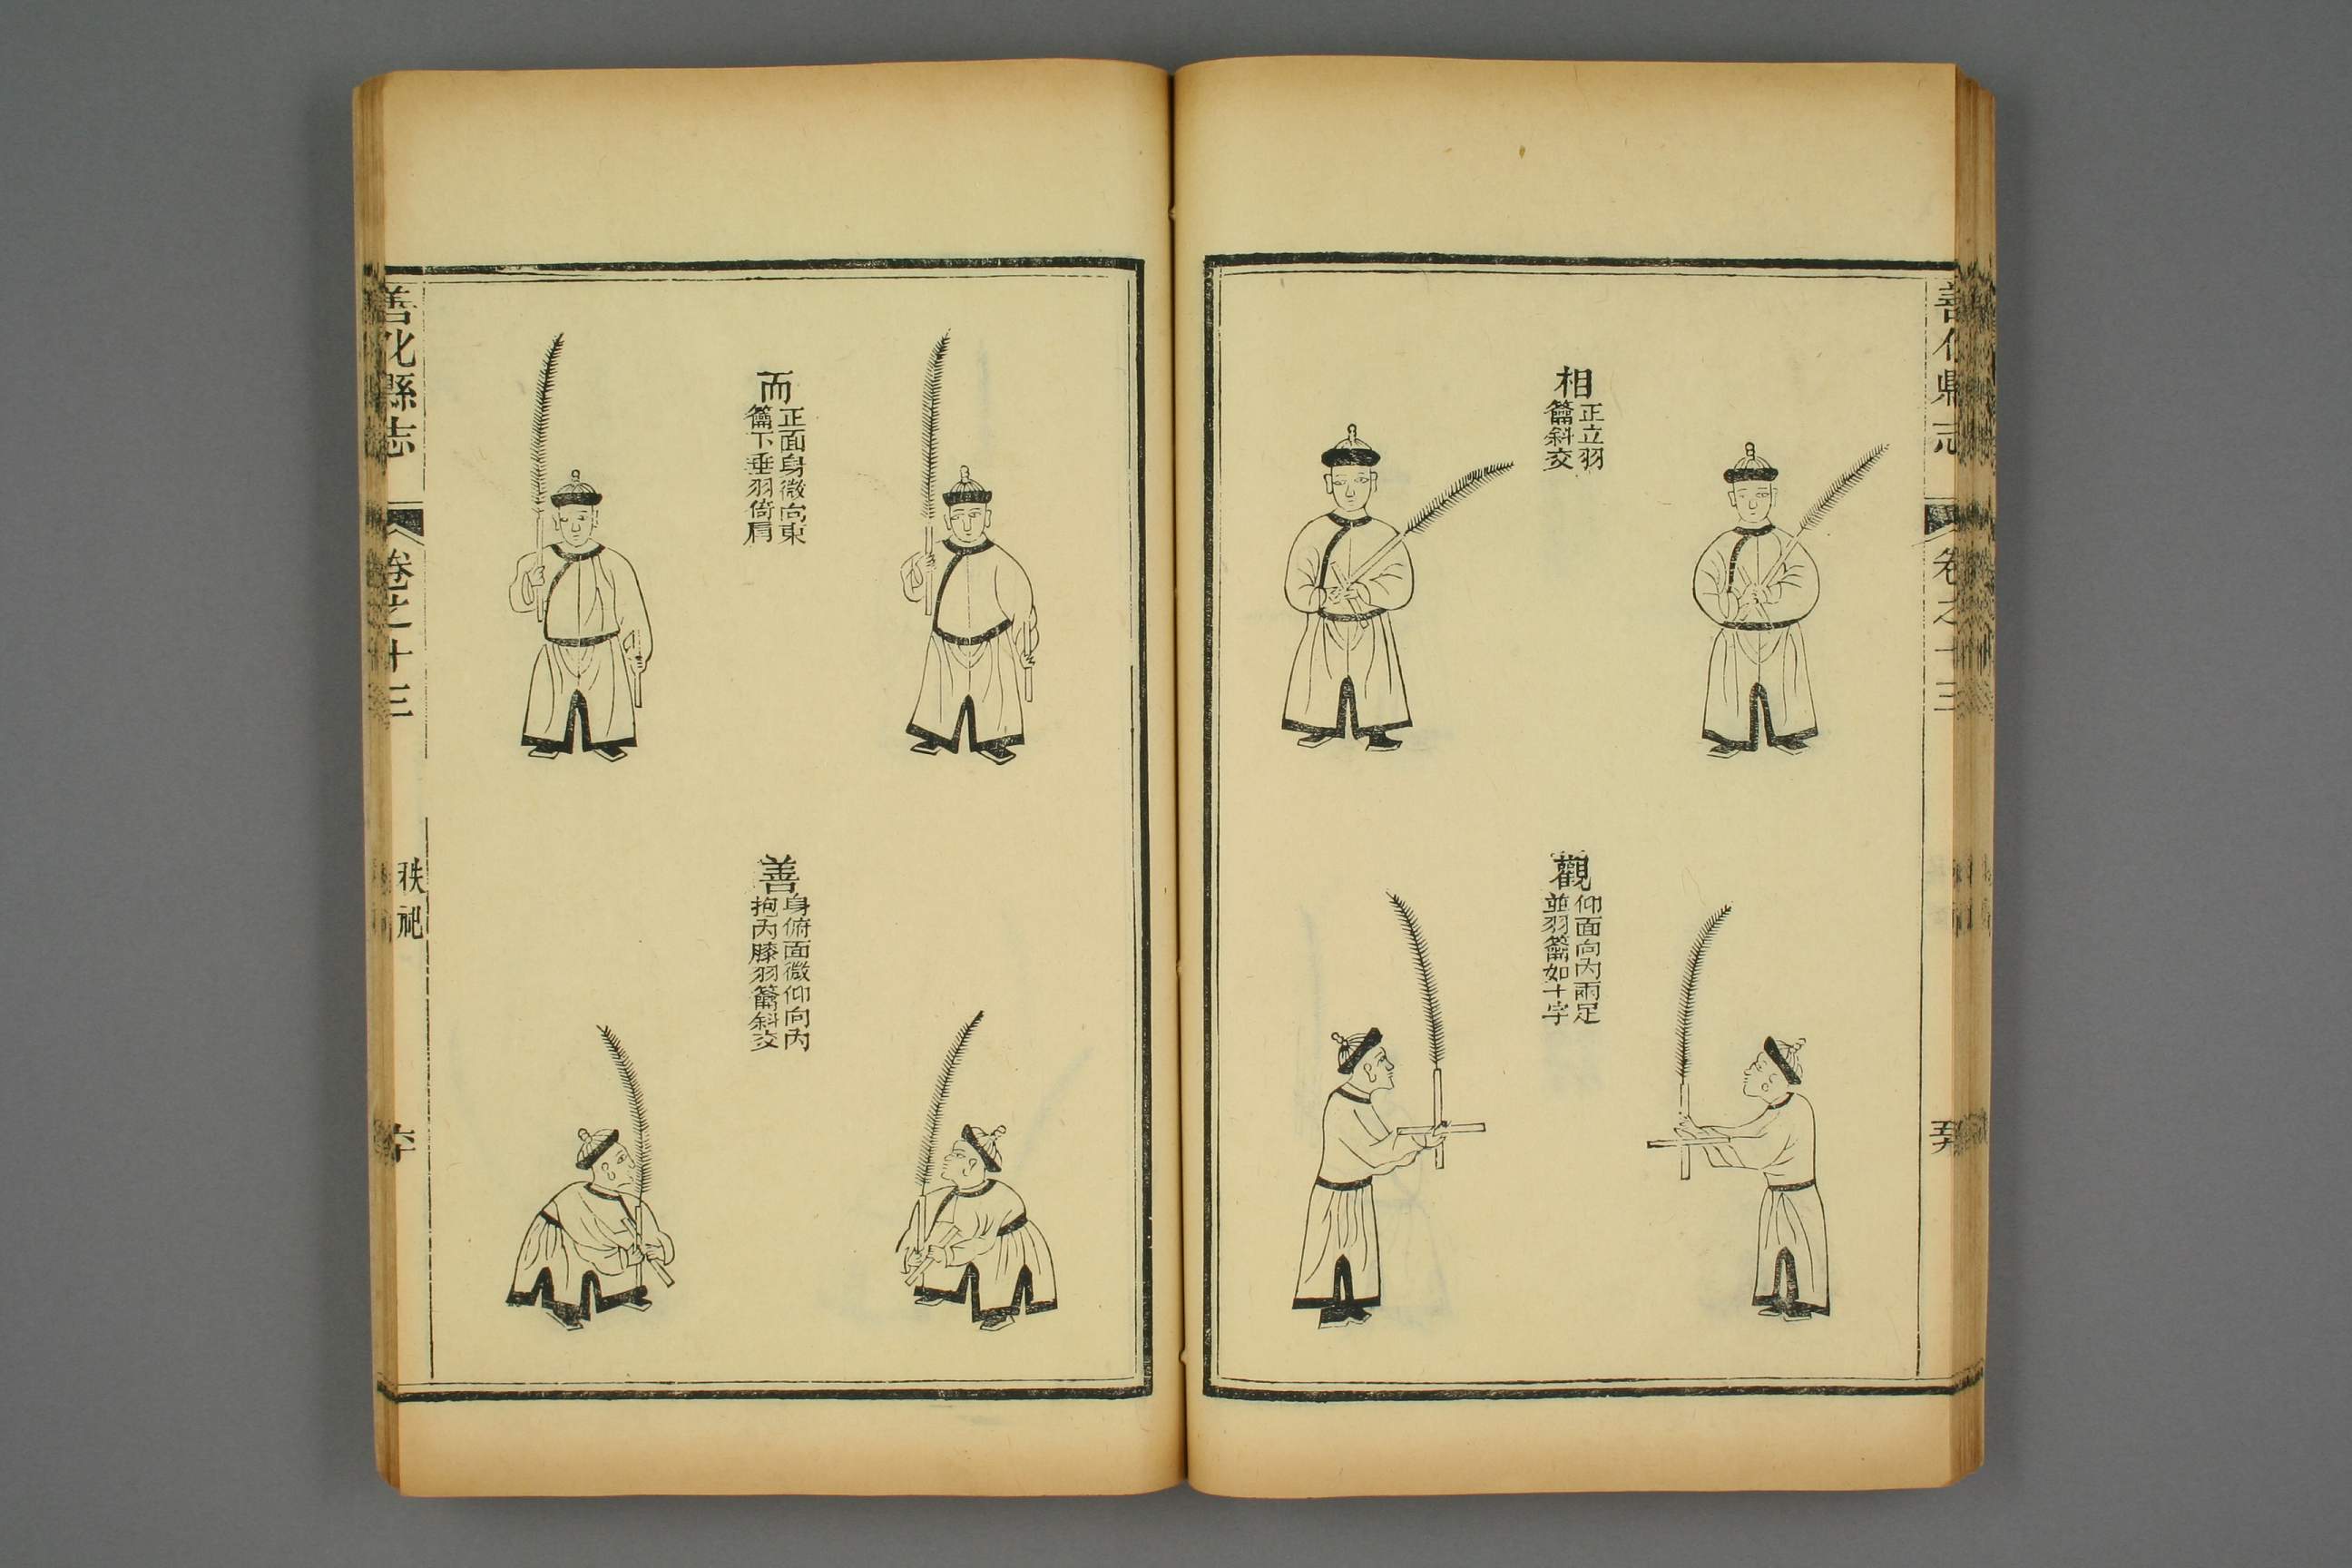 善化縣志
卷之十三
相
正立羽
籥斜交
觀
仰面向內兩足
並羽籥如十字
而
正面身微向東
籥下垂羽倚肩
善
身俯面微仰向內
抱內膝羽籥斜交
善化縣志
卷之十三
秩祀